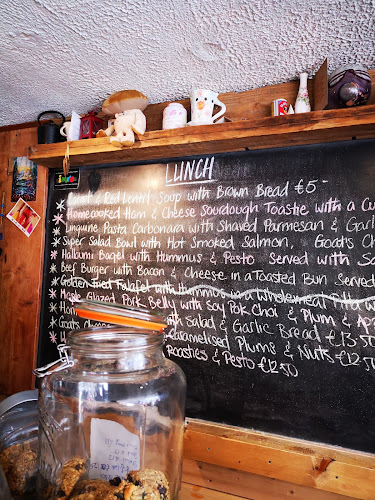 LUNCH
& Red Lentil Soup with Brown Bread £5-
Homecooked Ham & Cheese Sourdough Toastie with a Cu
Linguine Pasta Carbonara with Shaved Parmesan & Garl
Super Salad Bowl with Hot Smoked Salmon, Goat's Ch
Halloumi Bagel with Hummus & Pesto Served with Sa
Beef Burger with Bacon & Cheese in a Toasted Bun Served
Golden Fried Falafel with Hummus in a Wholemeal Pitta w
Maple Glazed Pork Belly with Soy Pok Choi & Plum & Ap
Hom
Goats with Salad & Garlic Bread £13.50
H Caramelised Plums & Nuts £12.50
Roasties & Pesto £12.50